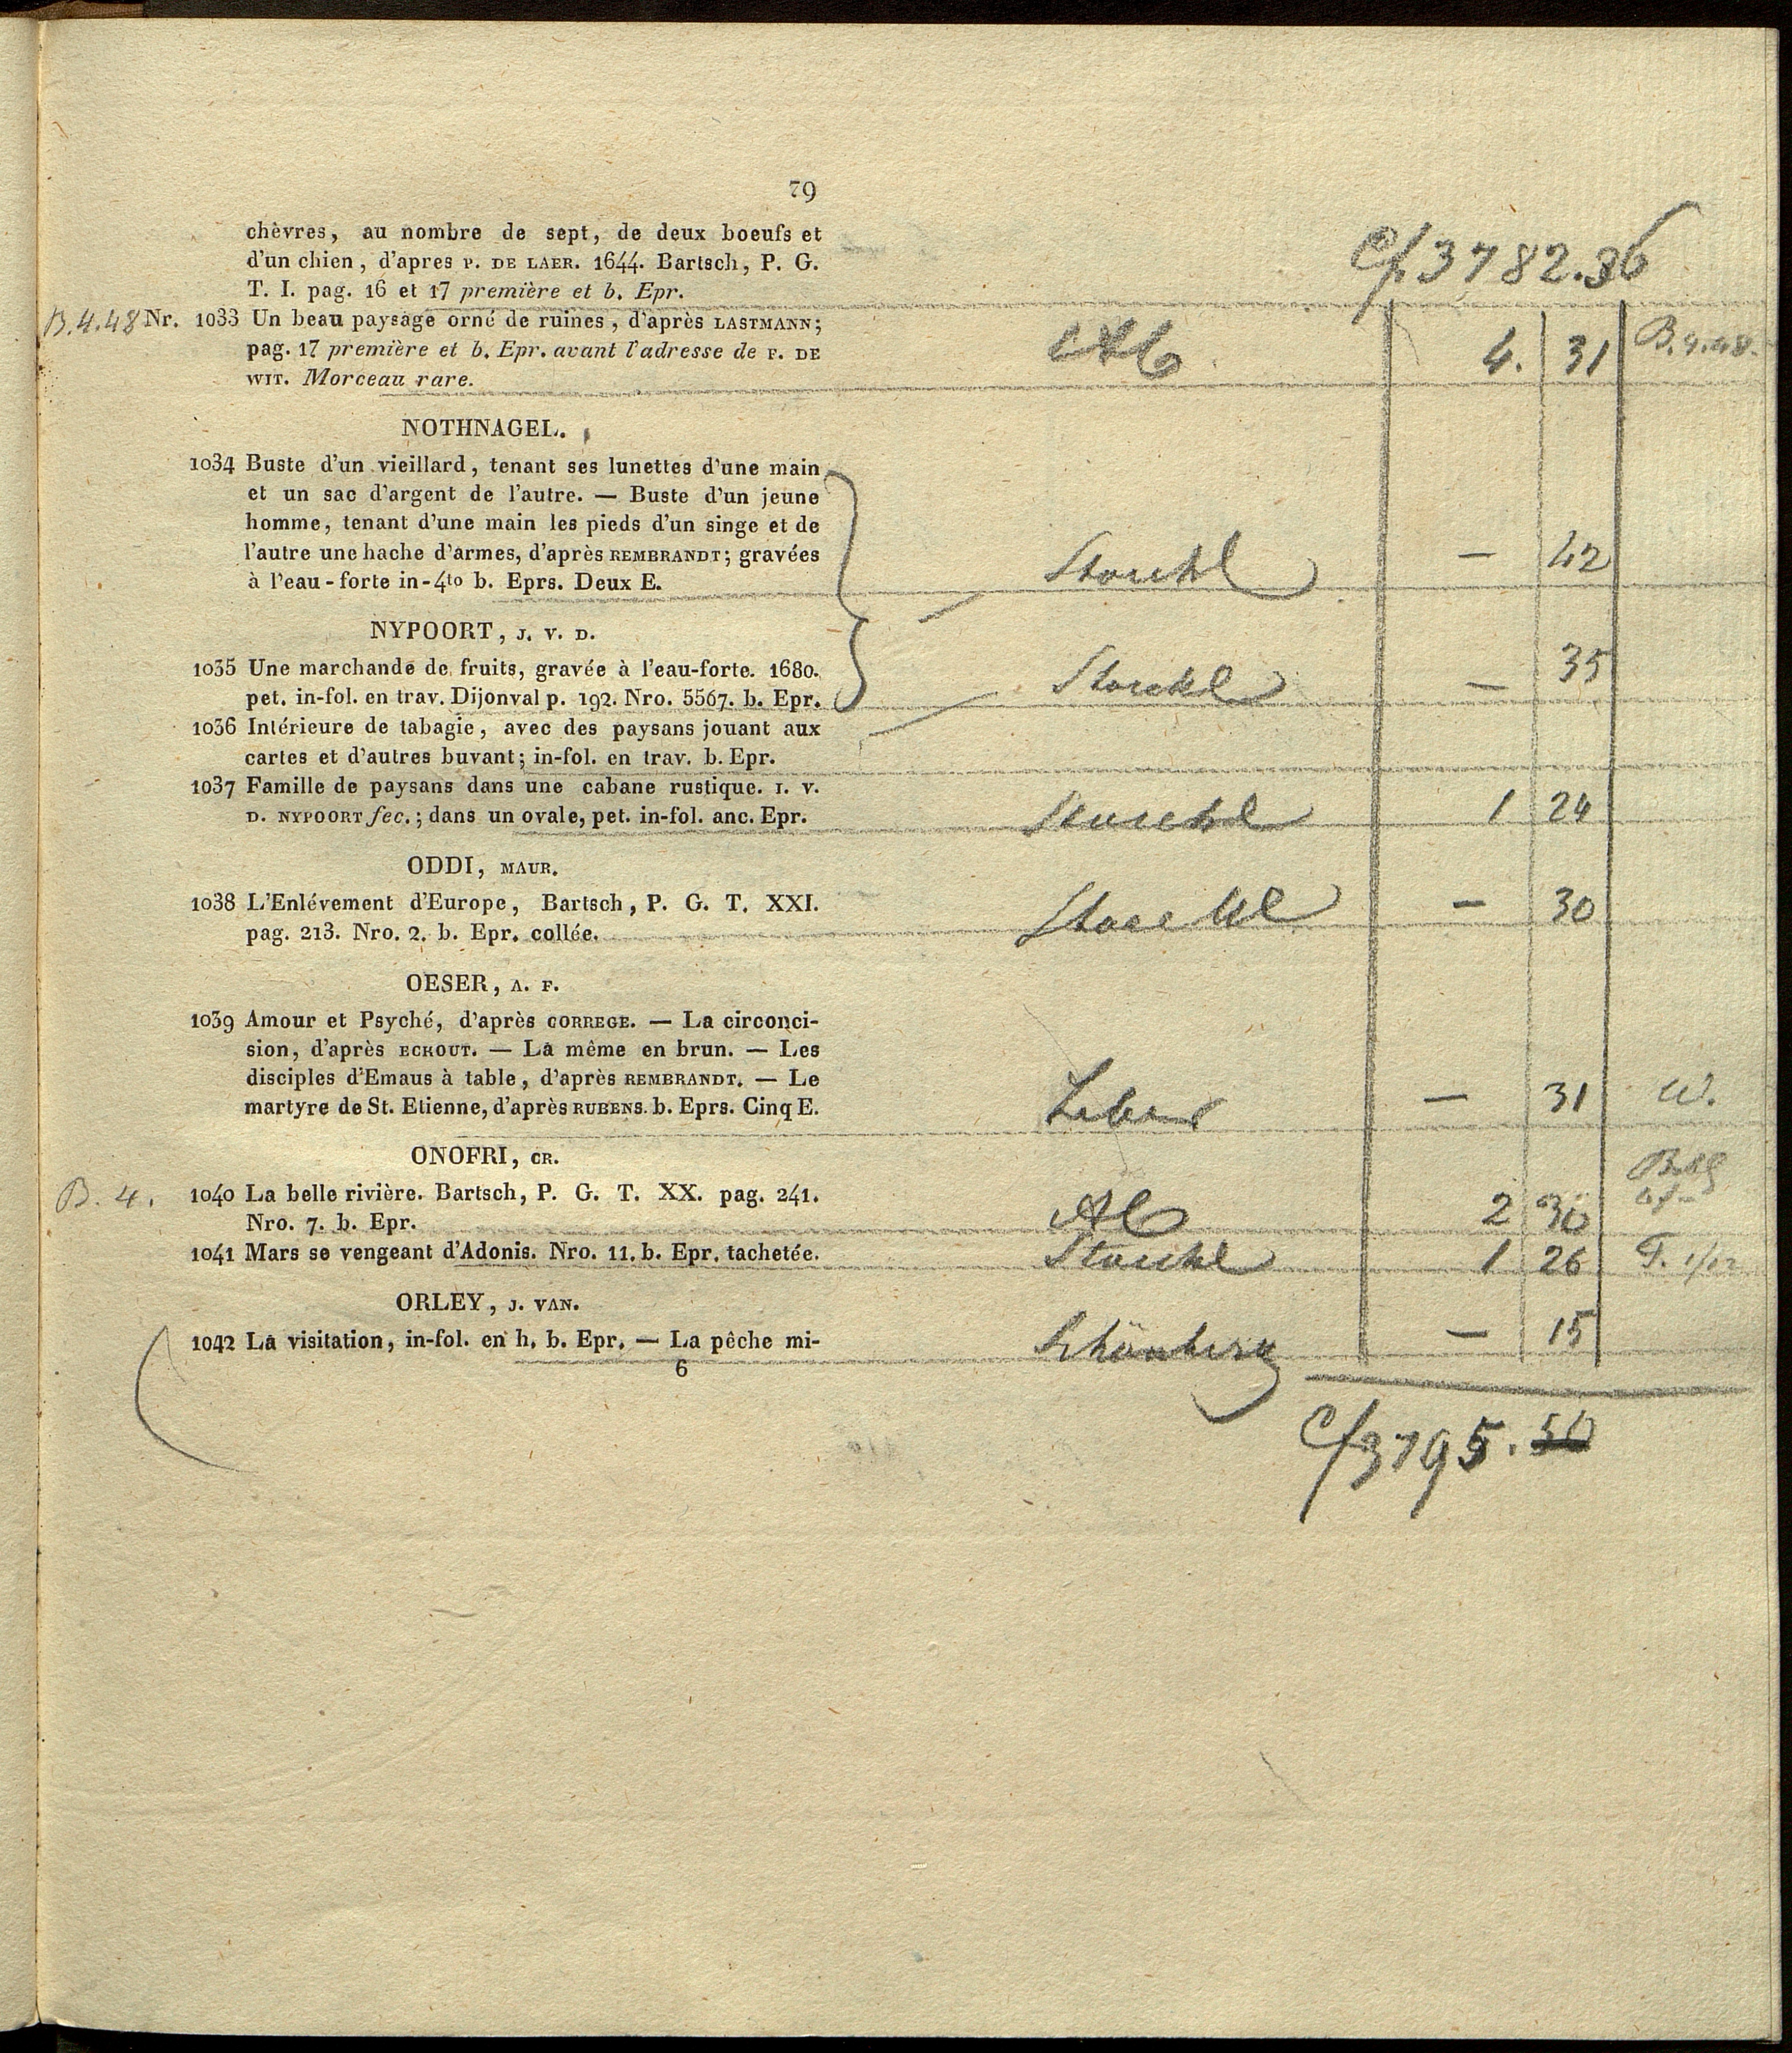 79
C/. 3782.36
chèvres, au nombre de sept, de deux boeufs et
d'un chien, d'apres P. DE LAER. 1644. Bartsch, P. G.
T. I. pag. 16 et 17 première et b. Epr.
B.4.48 Nr. 1033 Un beau paysage orné de ruines, d'après LASTMANN;
pag. 17 première et b. Epr. avant l'adresse de F. DE
WIT. Morceau rare.
4. 31 B.4.48.
NOTHNAGEL.
1034 Buste d'un vieillard, tenant ses lunettes d'une main
et un sac d'argent de l'autre. — Buste d'un jeune
homme, tenant d'une main les pieds d'un singe et de
l'autre une hache d'armes, d'après REMBRANDT; gravées
à l'eau-forte in-4to b. Eprs. Deux E.
Stoeckl — 42
NYPOORT, J. V. D.
1035 Une marchande de fruits, gravée à l'eau-forte. 1680.
pet. in-fol. en trav. Dijonval p. 192. Nro. 5567. b. Epr.
Stoeckl — 35
1036 Intérieure de tabagie, avec des paysans jouant aux
cartes et d'autres buvant; in-fol. en trav. b. Epr.
1037 Famille de paysans dans une cabane rustique. I. V.
D. NYPOORT fec.; dans un ovale, pet. in-fol. anc. Epr.
Stoeckl 1 24
ODDI, MAUR.
1038 L'Enlévement d'Europe, Bartsch, P. G. T. XXI.
pag. 213. Nro. 2. b. Epr. collée.
Stoeckl — 30
OESER, A. F.
1039 Amour et Psyché, d'après CORREGE. — La circonci-
sion, d'après ECKOUT. — La même en brun. — Les
disciples d'Emaus à table, d'après REMBRANDT. — Le
martyre de St. Etienne, d'après RUBENS. b. Eprs. Cinq E.
— 31 W.
ONOFRI, CR.
B. 4. 1040 La belle rivière. Bartsch, P. G. T. XX. pag. 241.
Nro. 7. b. Epr.
2 30
1041 Mars se vengeant d'Adonis. Nro. 11. b. Epr. tachetée.
Stoeckl 1 26 T. 1/12
ORLEY, J. VAN.
1042 La visitation, in-fol. en h. b. Epr. — La pêche mi-
Schönberg — 15
6
C/ 3795.50